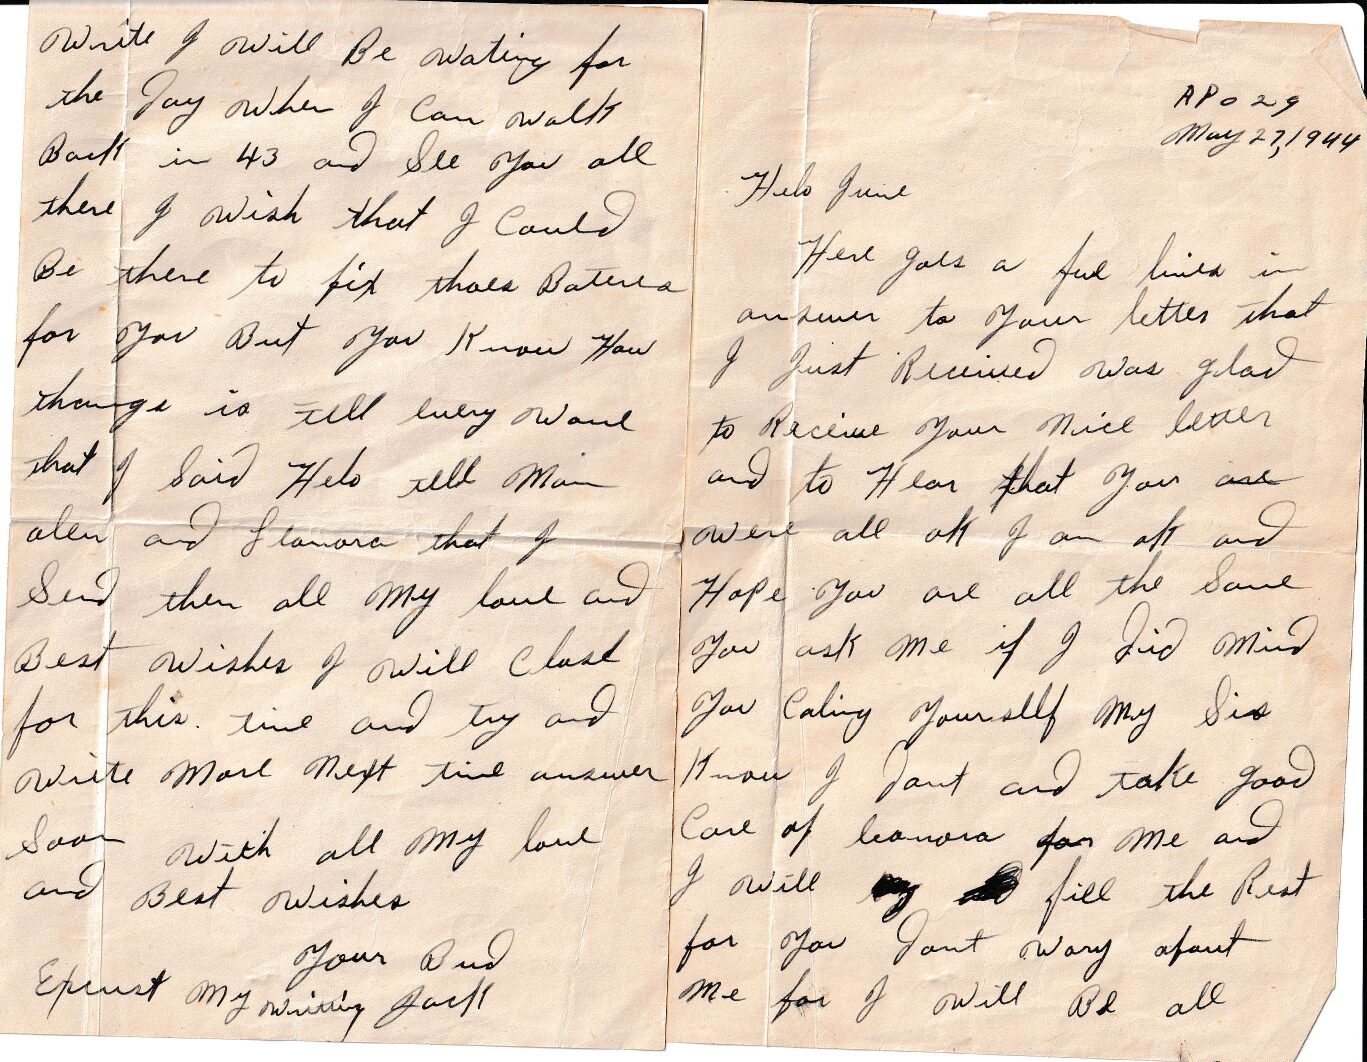 APO 29
May 27, 1944
Helo June
Here goes a few lines in
answer to your letter that
I Just Received was glad
to Receive Your Nice letter
and to Hear that You are
were all ok I am ok and
Hope You are all the Same
You ask Me if I Did Mind
You Caling Yourself My Sis
Know I Dont and take good
Care of leanora for Me and
I will fill the Rest
for You Dont wory about
Me for I will Be all
write I will Be wating for
the Day when I Can walk
Back in 43 and See You all
there I wish that I Could
Be there to fix thoes Bateres
for You But You Know How
things is tell every wone
that I Said Helo tell Mom
alen and Leanora that I
Send then all My love and
Best wishes I will Close
for this. time and try and
write More Next time answer
Soon with all My love
and Best wishes
Your Bud
Jack
Excust My writing